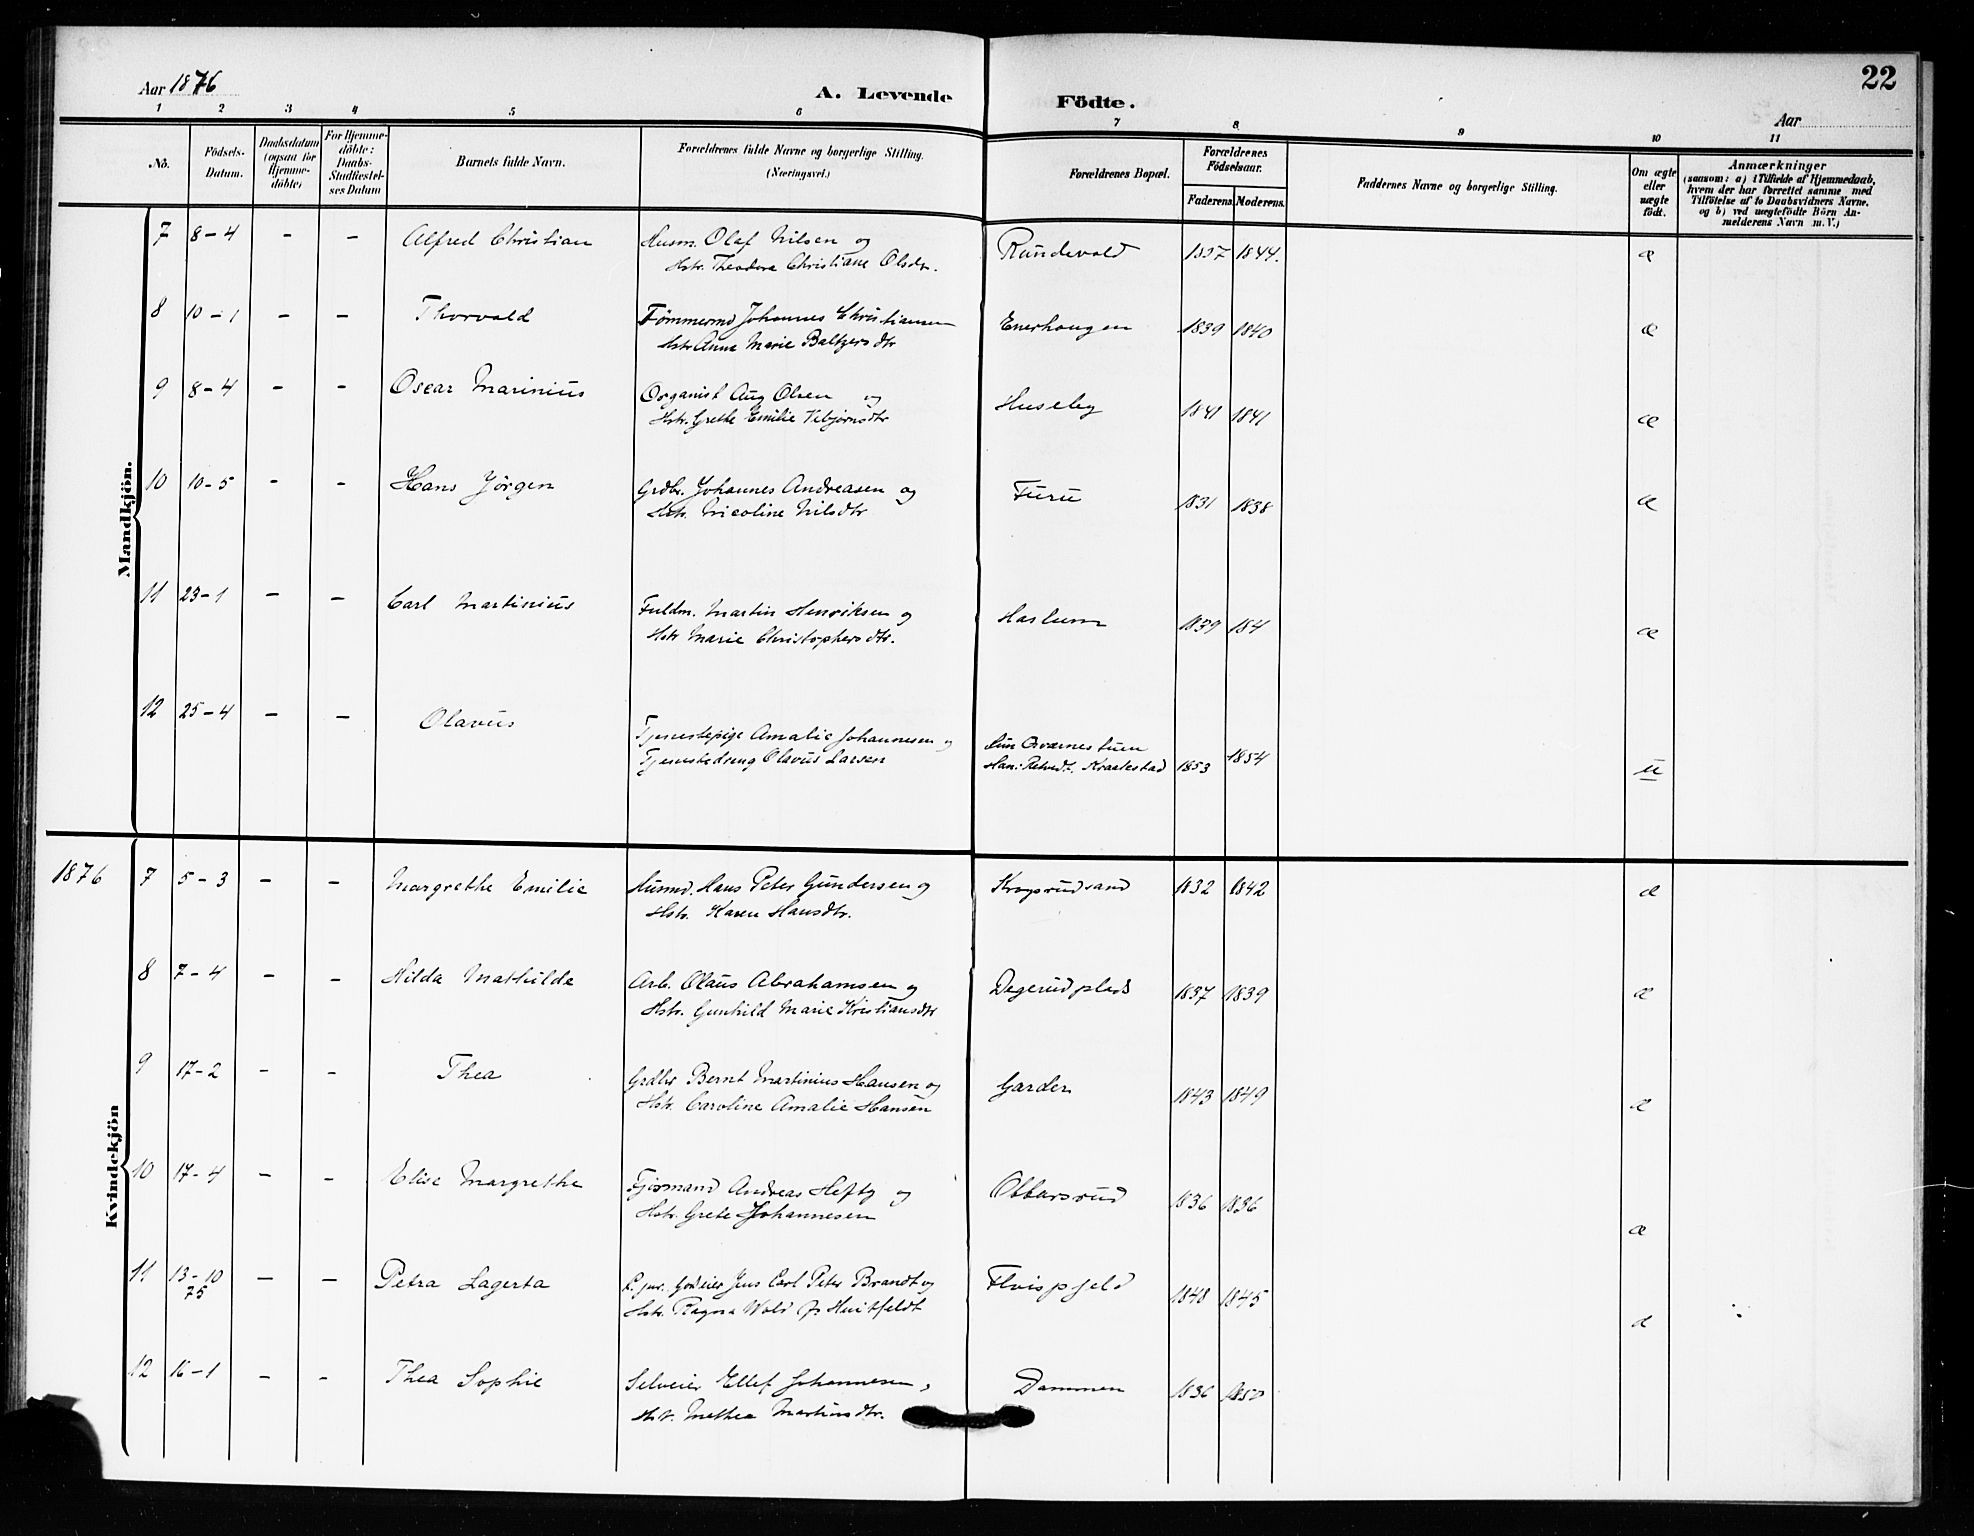 22
Aar 1876
A. Levende Födte.
Aar
1 2 3 4 5 6 7 8 9 10 11
No.
Födsels-Datum.
Daabsdatum (ogsaa for Hjemmedöbte)
For Hjemmedöbte: Daabs-Stadfæstelses Datum
Barnets fulde Navn.
Forældrenes fulde Navne og borgerlige Stilling.
(Næringsvei.)
Forældrenes Bopæl.
Forældrenes Födselsaar.
Faderens. Moderens.
Faddernes Navne og borgerlige Stilling.
Om ægte eller uægte födt.
Anmærkninger
(saasom: a) i Tilfælde af Hjemmedaab,
hvem der har forrettet samme med
Tilföielse af to Daabsvidners Navne.
og b) ved uægtefödte Börn An-
melderens Navn m. V.)
Mandkjön.
7 8-4 - - Alfred Christian Husm. Olaf Nilsen og Rundevold 1837 1844. æ
Hstr. Theodora Christiane Olsdr.
8 10-1 - - Thorvald Tömmermd Johannes Christiansen Enerhougen 1839 1840 æ
Hstr Anne Marie Baltzersdtr
9 8-4 - - Oscar Marinius Organist Aug Olsen og Huseby 1841 1841 æ
Hstr. Grethe Emilie Vebjørnsdtr
10 10-5 - - Hans Jørgen Grdbr. Johannes Andreasen og Furu 1831 1838 æ
Hstr. Nicoline Nilsdtr
11 23-1 - - Carl Martinius Fuldm. Martin Henriksen og Haslum 1839 184 æ
Hstr Marie Christophersdtr.
12 25-4 - - Olavus Tjenestepige Amalie Johannesen og Hun 1853 1854 u
Tjenestedreng Olavus Larsen Han: Kraakestad
1876
Kvindekjön
7 5-3 - - Margrethe Emilie Husmd. Hans Peter Gundersen og Krogsrudsand 1832 1842 æ
Hstr. Karen Hansdtr.
8 7-4 - - Hilda Mathilde Arb. Olaus Abrahamsen og Degerudplads 1837 1839 æ
Hstr. Gunhild Marie Kristiansdtr
9 17-2 - - Thea Grdbr Bernt Martinius Hansen og Garder 1843 1849 æ
Hstr. Caroline Amalie Hansen
10 17-4 - - Elise Margrethe Fjösmand Andreas Hefty og Ottarsrud 1836 1836 æ
Hstr. Grete Johannesen
11 13-10 75 - - Petra Lagerta Gdeier Jens Carl Peter Brandt og 1848 1845 æ
Hstr. Ragna Wold Huitfeldt
12 16-1 - - Thea Sophie Selveier Ellef Johannesen, Dammen 1836 1850
Hst. Mathea Martinsdtr.